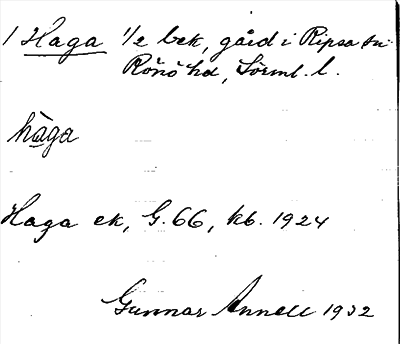 1 Haga 1/2 bek, gård i Ripsa sn
Rönö hd, Sörml. l.
håga
Haga ek, G. 66, kb. 1924
Gunnar Annell 1932